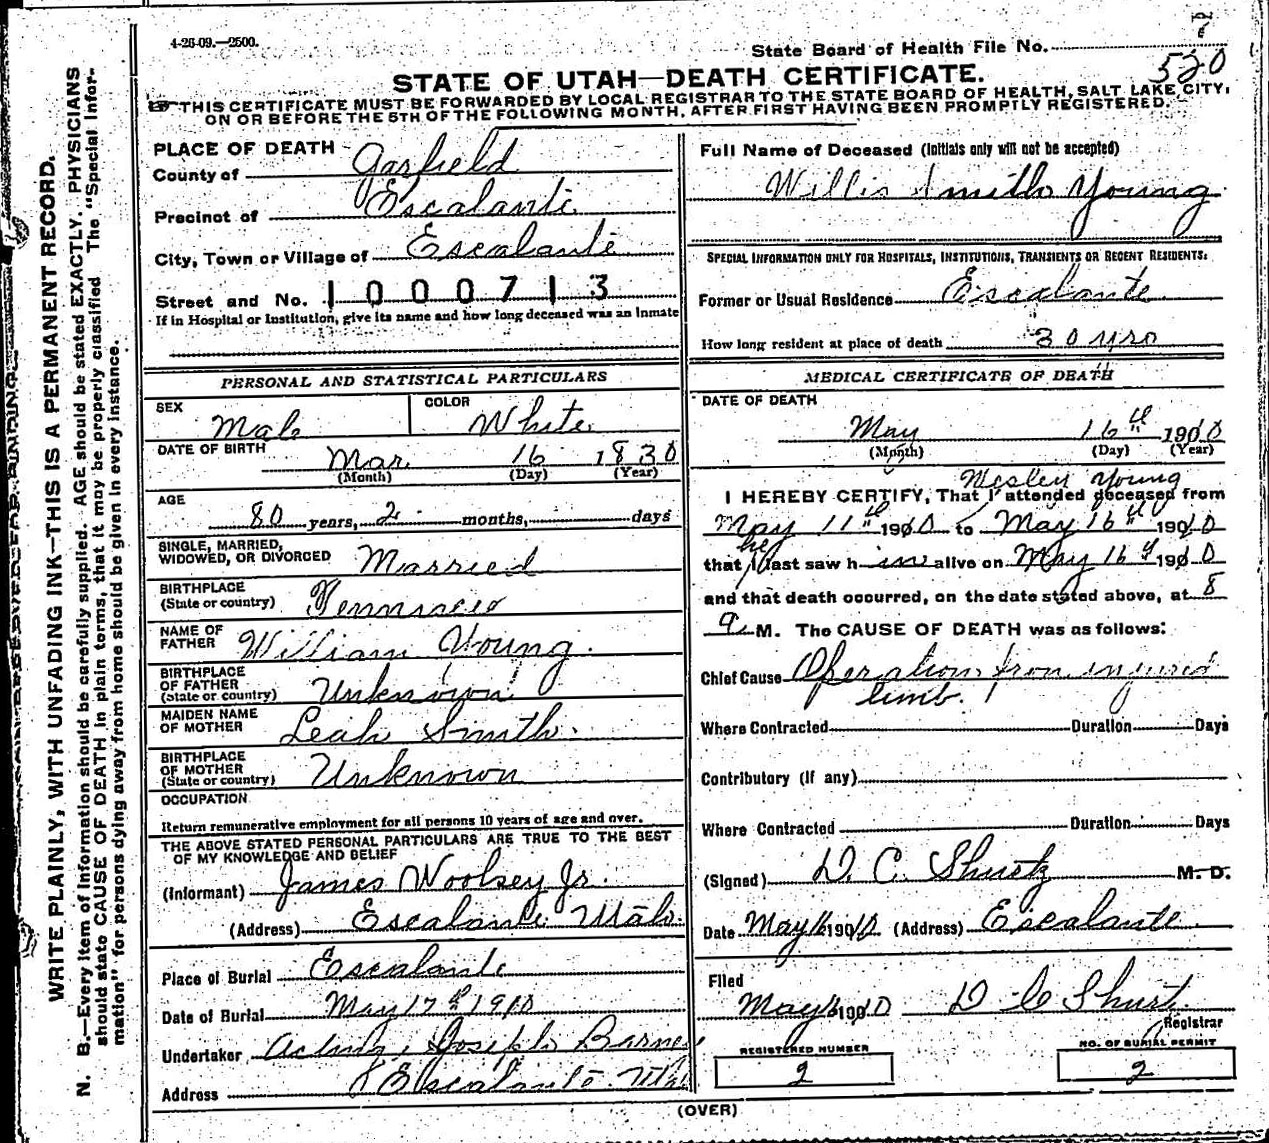 4-26-09.—2500.
State Board of Health File No.
520
STATE OF UTAH—DEATH CERTIFICATE.
THIS CERTIFICATE MUST BE FORWARDED BY LOCAL REGISTRAR TO THE STATE BOARD OF HEALTH, SALT LAKE CITY,
ON OR BEFORE THE 5TH OF THE FOLLOWING MONTH, AFTER FIRST HAVING BEEN PROMPTLY REGISTERED.
WRITE PLAINLY, WITH UNFADING INK—THIS IS A PERMANENT RECORD.
N. B.—Every item of information should be carefully supplied. AGE should be stated EXACTLY. PHYSICIANS
should state CAUSE OF DEATH in plain terms, that it may be properly classified. The "Special Infor-
mation" for persons dying away from home should be given in every instance.
PLACE OF DEATH
County of Garfield
Precinct of Escalante
City, Town or Village of Escalante
Street and No. 1000713
If in Hospital or Institution, give its name and how long deceased was an Inmate
PERSONAL AND STATISTICAL PARTICULARS
SEX Male
COLOR White
DATE OF BIRTH Mar. 16 1830
(Month) (Day) (Year)
AGE
80 years, 2 months, days
SINGLE, MARRIED,
WIDOWED, OR DIVORCED Married
BIRTHPLACE
(State or country) Tennissee
NAME OF
FATHER William Young.
BIRTHPLACE
OF FATHER
(State or country) Unknown
MAIDEN NAME
OF MOTHER Leah Smith.
BIRTHPLACE
OF MOTHER
(State or country) Unknown
OCCUPATION
Return remunerative employment for all persons 10 years of age and over.
THE ABOVE STATED PERSONAL PARTICULARS ARE TRUE TO THE BEST
OF MY KNOWLEDGE AND BELIEF
(Informant) James Woolsey Jr.
(Address) Escalante Utah.
Place of Burial Escalante
Date of Burial May 17th 1910
Undertaker Acting, Joseph Barney
Address Escalante Utah
Full Name of Deceased (Initials only will not be accepted)
Willis Smith Young
SPECIAL INFORMATION ONLY FOR HOSPITALS, INSTITUTIONS, TRANSIENTS OR RECENT RESIDENTS:
Former or Usual Residence Escalante
How long resident at place of death 30 yrs
MEDICAL CERTIFICATE OF DEATH
DATE OF DEATH
May 16th 1910
(Month) (Day) (Year)
Wesley Young
I HEREBY CERTIFY, That I attended deceased from
May 11th 1910 to May 16th 1910
he
that I last saw him alive on May 16th 1910
and that death occurred, on the date stated above, at 8
a M. The CAUSE OF DEATH was as follows:
Chief Cause Operation from injured
limb.
Where Contracted Duration Days
Contributory (If any)
Where Contracted Duration Days
(Signed) D. C. Shurtz M. D.
Date May 16 1910 (Address) Escalante
Filed
May 16 1910 D C Shurtz
Registrar
REGISTERED NUMBER
2
NO. OF BURIAL PERMIT
2
(OVER)